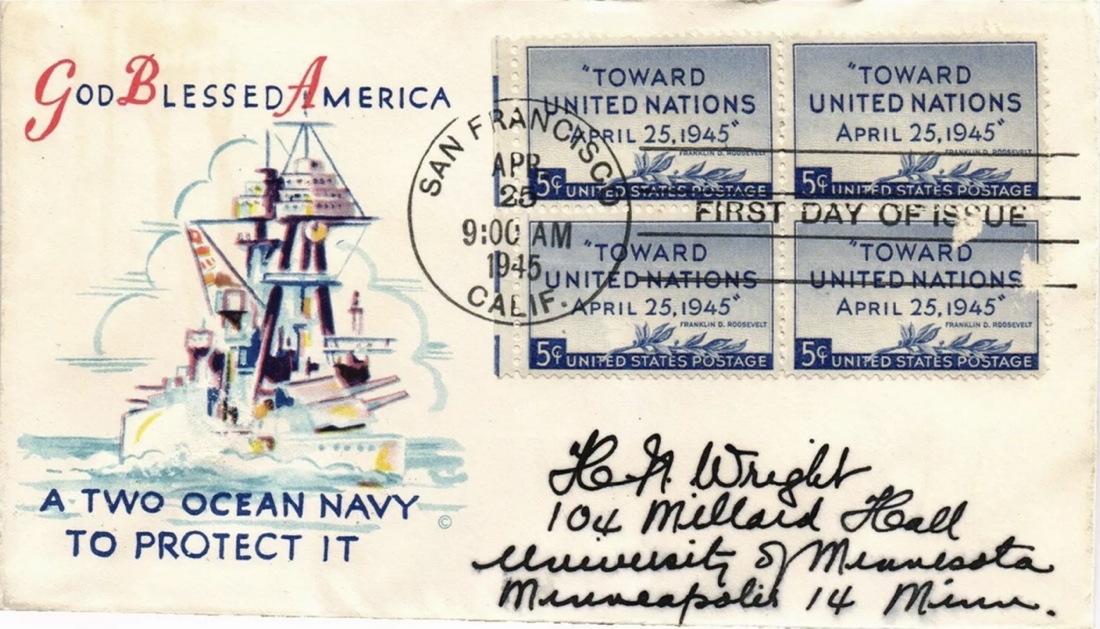 GOD BLESSED AMERICA
A TWO OCEAN NAVY
TO PROTECT IT
©
"TOWARD
UNITED NATIONS
APRIL 25, 1945"
FRANKLIN D. ROOSEVELT
5¢ UNITED STATES POSTAGE
"TOWARD
UNITED NATIONS
APRIL 25, 1945"
FRANKLIN D. ROOSEVELT
5¢ UNITED STATES POSTAGE
"TOWARD
UNITED NATIONS
APRIL 25, 1945"
FRANKLIN D. ROOSEVELT
5¢ UNITED STATES POSTAGE
"TOWARD
UNITED NATIONS
APRIL 25, 1945"
FRANKLIN D. ROOSEVELT
5¢ UNITED STATES POSTAGE
SAN FRANCISCO
APR
25
9:00 AM
1945
CALIF.
FIRST DAY OF ISSUE
H N Wright
104 Millard Hall
University of Minnesota
Minneapolis 14 Minn.